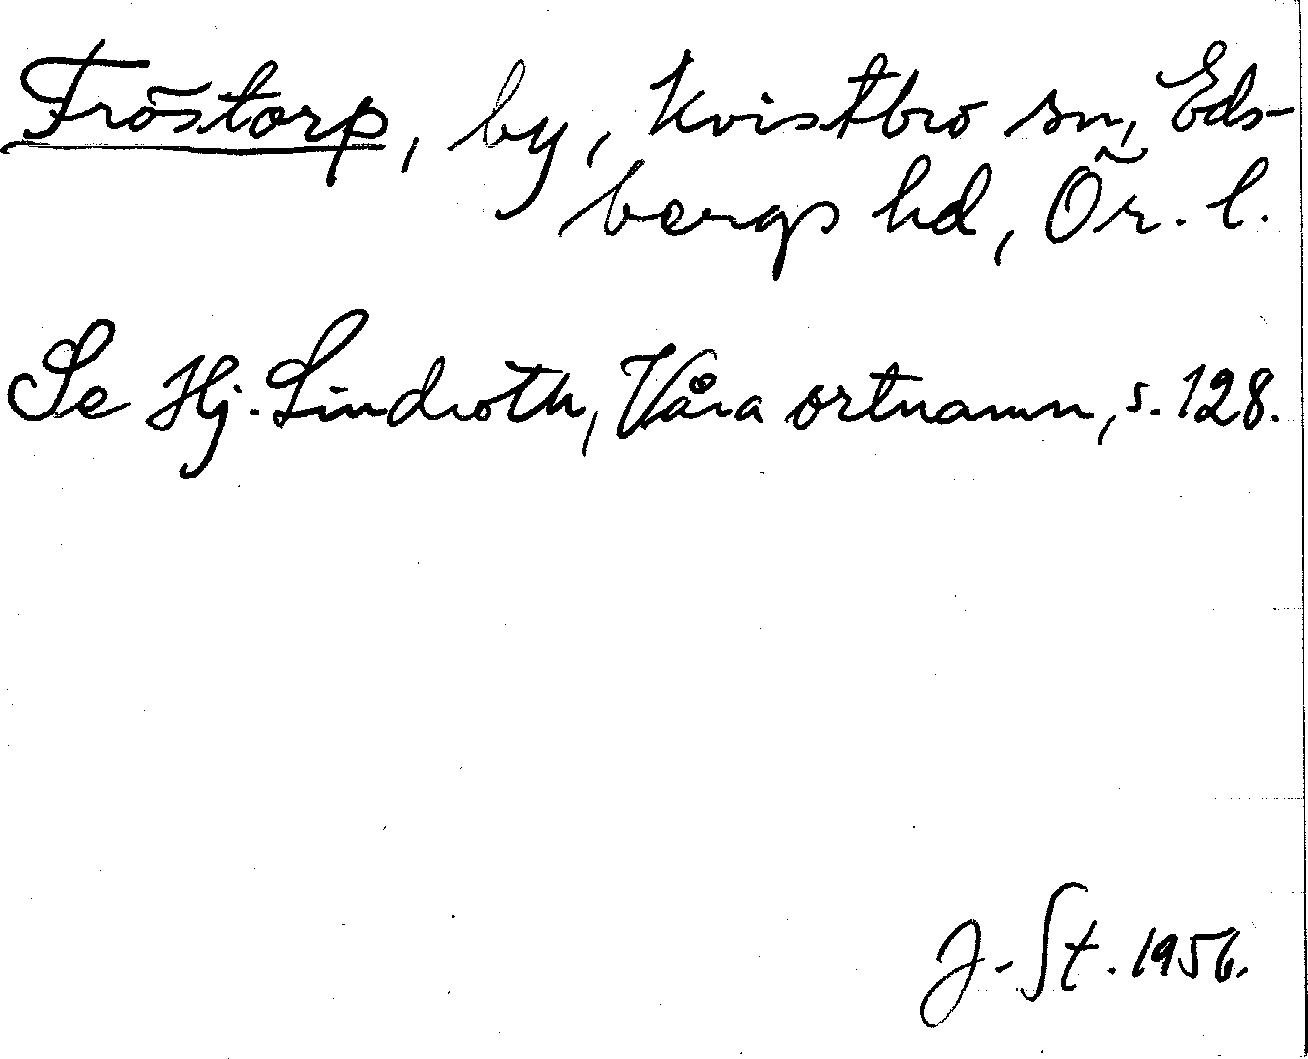 Fröstorp, by, Kvistbro sn, Eds-
bergs hd, Ör. l.
Se Hj. Lindroth, Våra ortnamn, s. 128.
J. St. 1956.